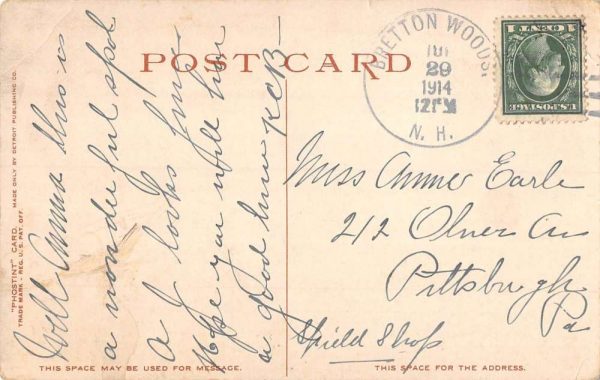 POST CARD
BRETTON WOODS.
29
1914
12 PM
N. H.
U.S. POSTAGE
1 CENT 1
Well Anna this is
a wonderful spot
a J looks fine
Hope you will have
a good time KCB
Miss Anna Earle
212 Oliver Av
Pittsburgh
Pa
Shield Shop
"PHOSTINT" CARD. MADE ONLY BY DETROIT PUBLISHING CO.
TRADE MARK - REG. U.S. PAT. OFF.
THIS SPACE MAY BE USED FOR MESSAGE.
THIS SPACE FOR THE ADDRESS.